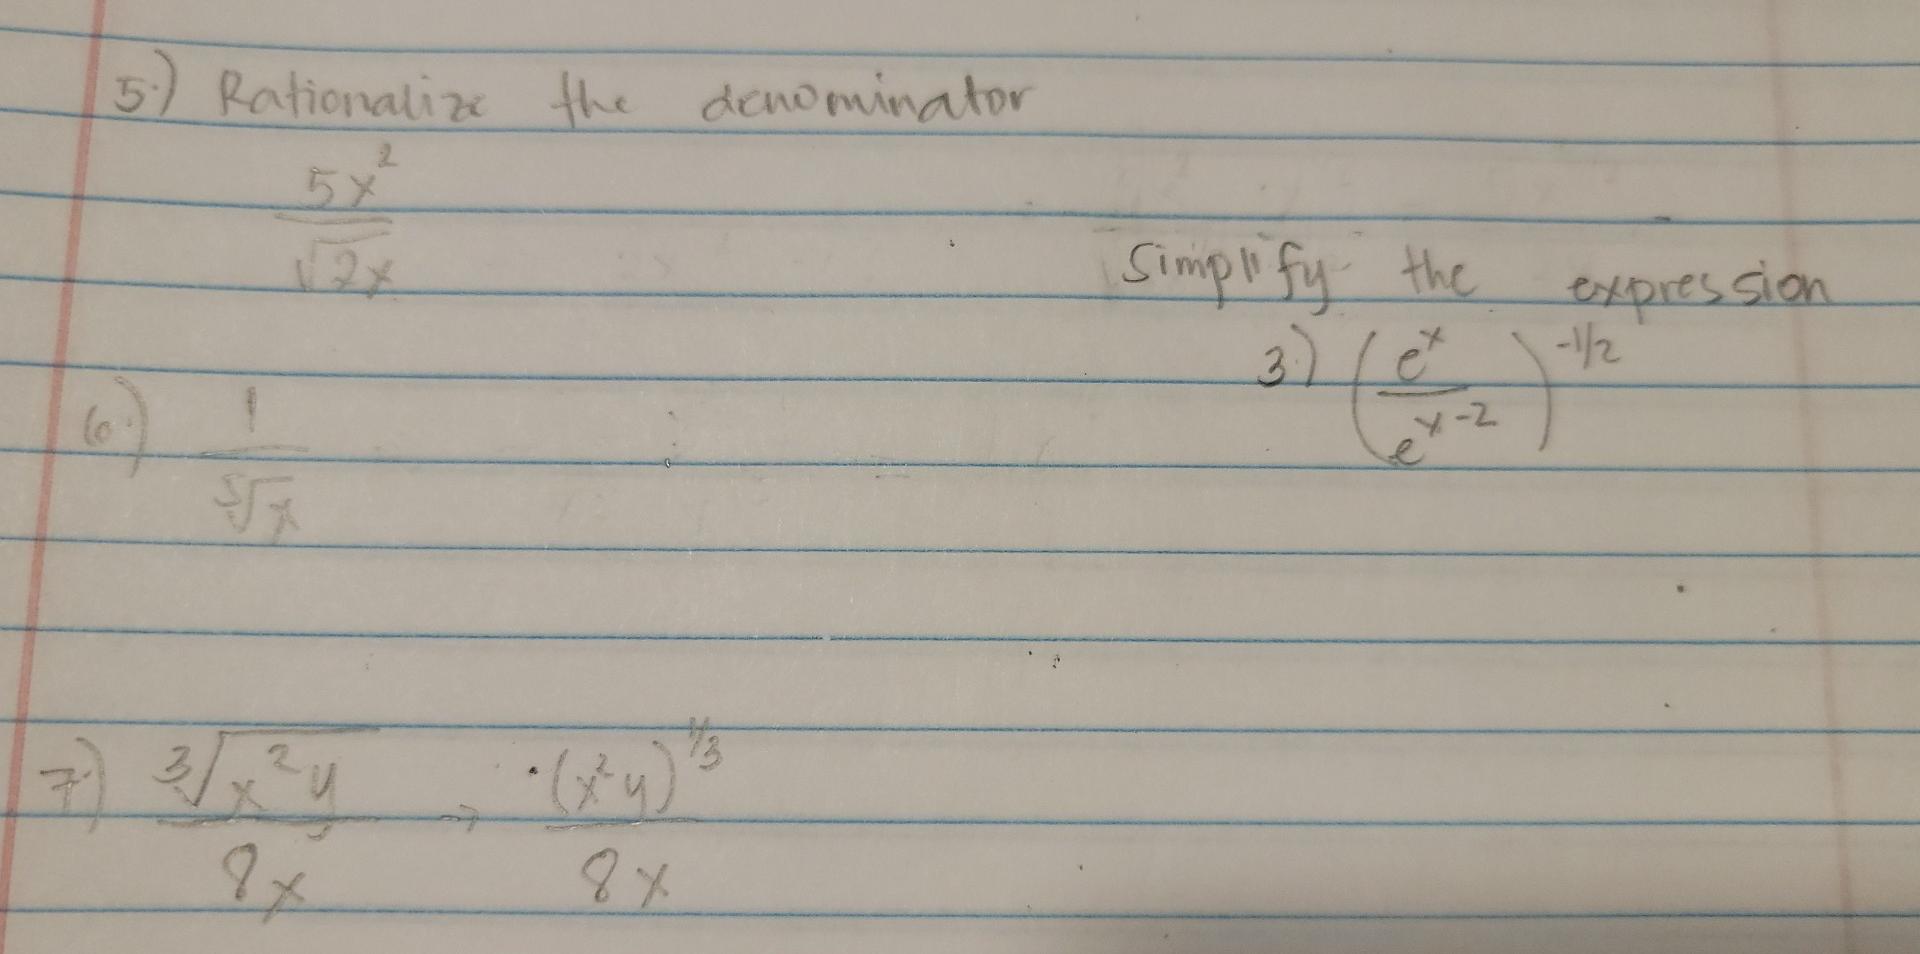 5.) Rationalize the denominator
5x²
√2x
Simplify the expression
3.) (e^x / e^(x-2))^(-1/2)
6.) 1
⁵√x
7.) ³√x²y → (x²y)^1/3
8x 8x